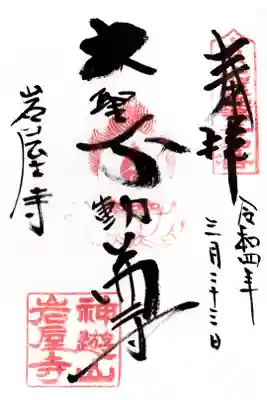 奉拝
令和四年
三月二十三日
大聖不動尊
岩屋寺
神遊山
岩屋寺